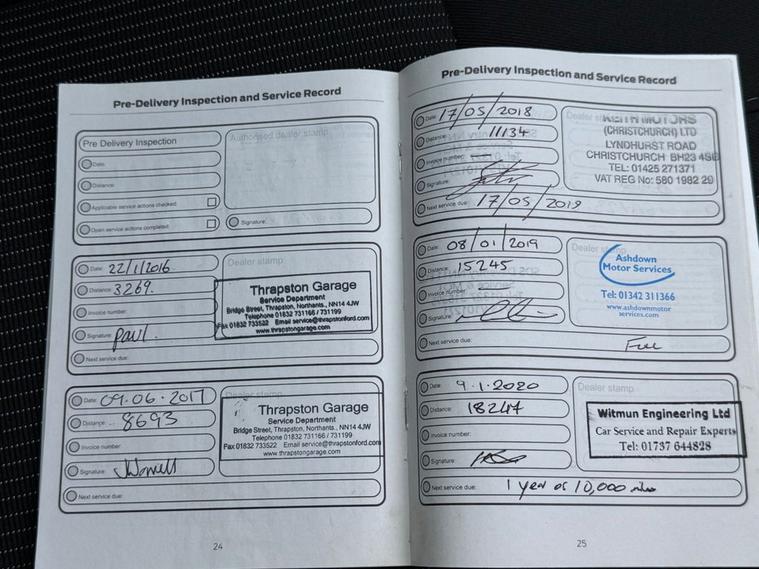 Pre-Delivery Inspection and Service Record
Pre Delivery Inspection
Date:
Distance:
Applicable service actions checked:
Open service actions completed:
Authorised dealer stamp
Signature:
Date: 22/1/2016
Distance: 3269.
Invoice number:
Signature: Paul.
Next service due:
Dealer stamp
Thrapston Garage
Service Department
Bridge Street, Thrapston, Northants., NN14 4JW
Telephone 01832 731166 / 731199
Fax 01832 733522 Email service@thrapstonford.com
www.thrapstongarage.com
Date: 09.06.2017
Distance: 8693
Invoice number:
Signature:
Next service due:
Dealer stamp
Thrapston Garage
Service Department
Bridge Street, Thrapston, Northants., NN14 4JW
Telephone 01832 731166 / 731199
Fax 01832 733522 Email service@thrapstonford.com
www.thrapstongarage.com
24
Pre-Delivery Inspection and Service Record
Date: 17/05/2018
Distance: 11134
Invoice number:
Signature:
Next service due: 17/05/2019
Dealer stamp
KEITH MOTORS
(CHRISTCHURCH) LTD
LYNDHURST ROAD
CHRISTCHURCH BH23 4SG
TEL: 01425 271371
VAT REG No: 580 1982 29
Date: 08/01/2019
Distance: 15245
Invoice number:
Signature:
Next service due: Full
Dealer stamp
Ashdown
Motor Services
Tel: 01342 311366
www.ashdownmotor
services.com
Date: 9.1.2020
Distance: 18247
Invoice number:
Signature:
Next service due: 1 year or 10,000 miles
Dealer stamp
Witmun Engineering Ltd
Car Service and Repair Experts
Tel: 01737 644828
25